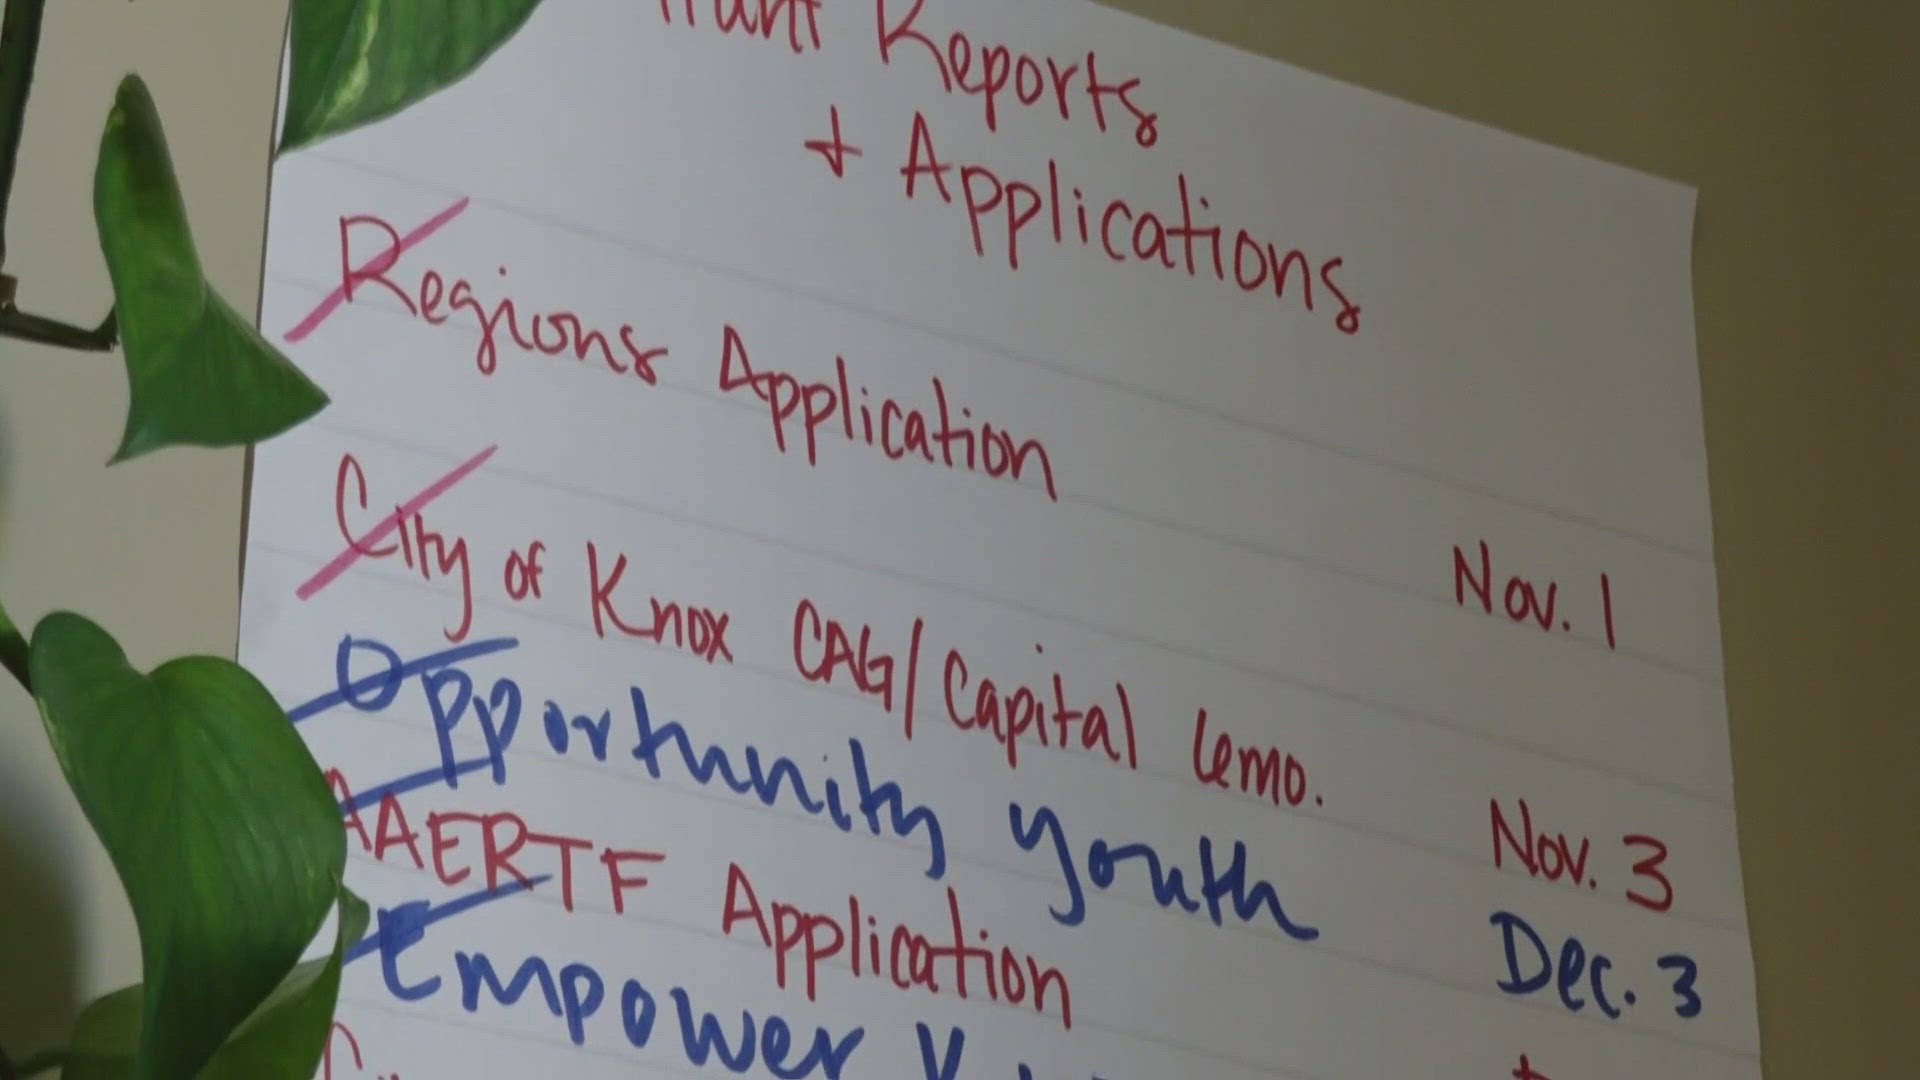 Reports
+ Applications
Regions Application Nov. 1
City of Knox CAG/Capital Nov. 3
Opportunity Youth Dec. 3
AAERTF Application
Empower